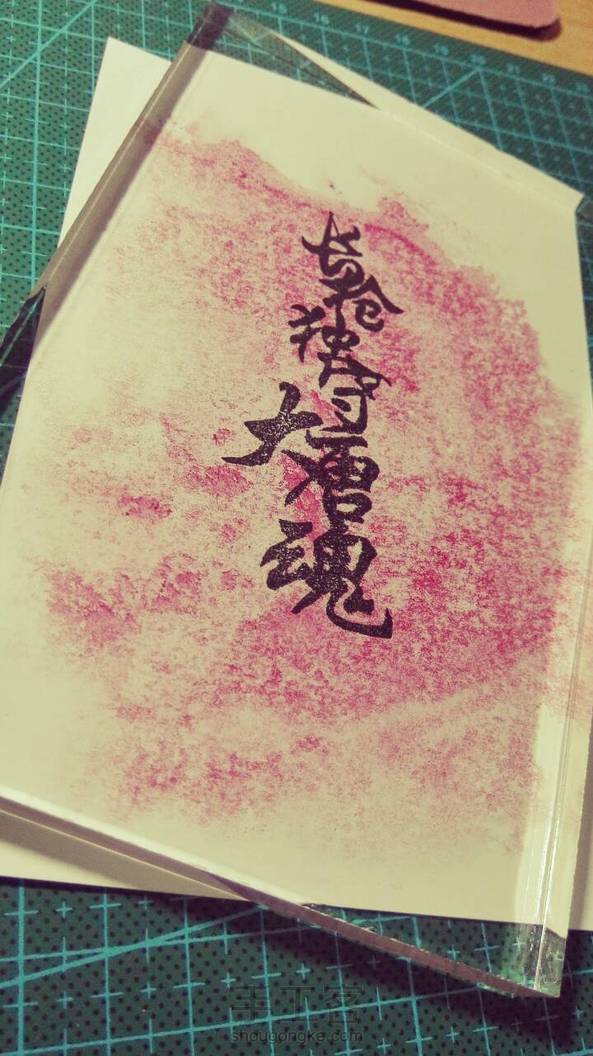 长枪独守
大唐魂
手工客
shougongke.com